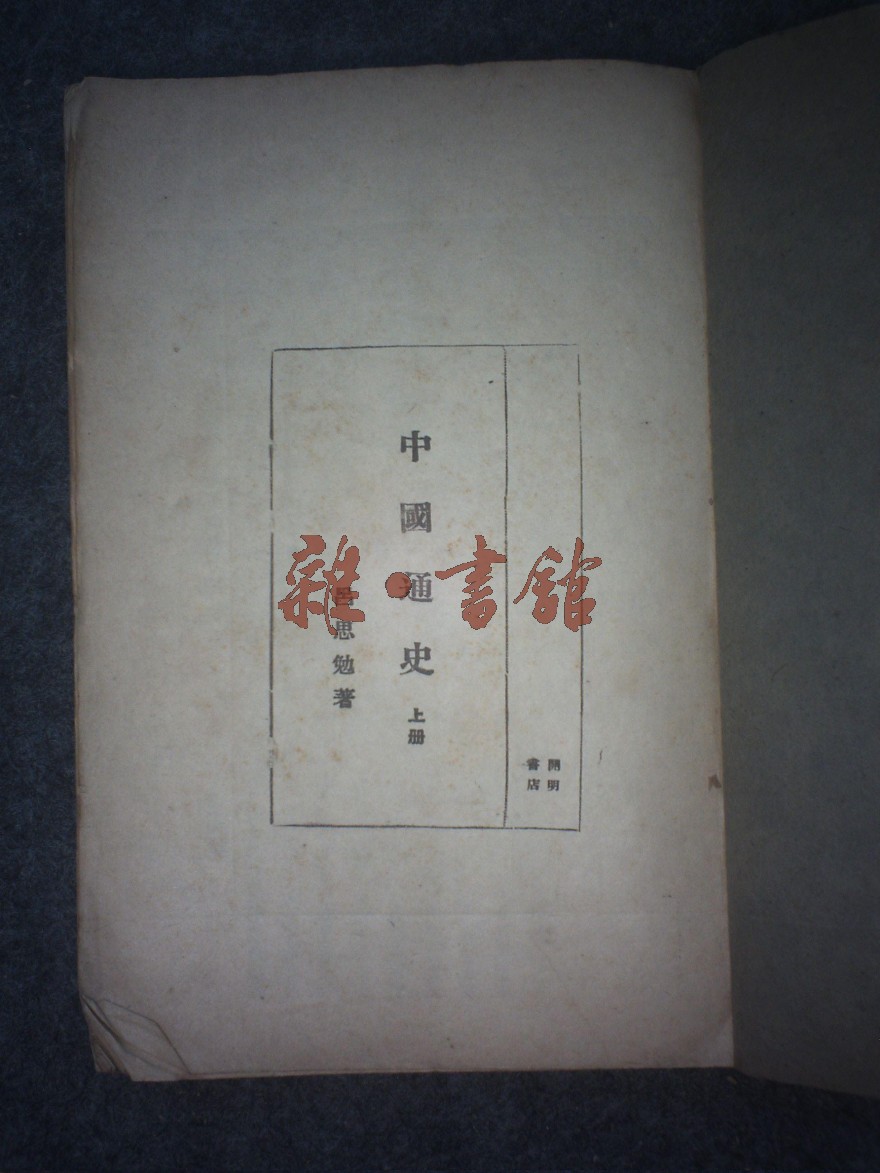 開明
書店
中國通史 上册
呂思勉著
雜·書館